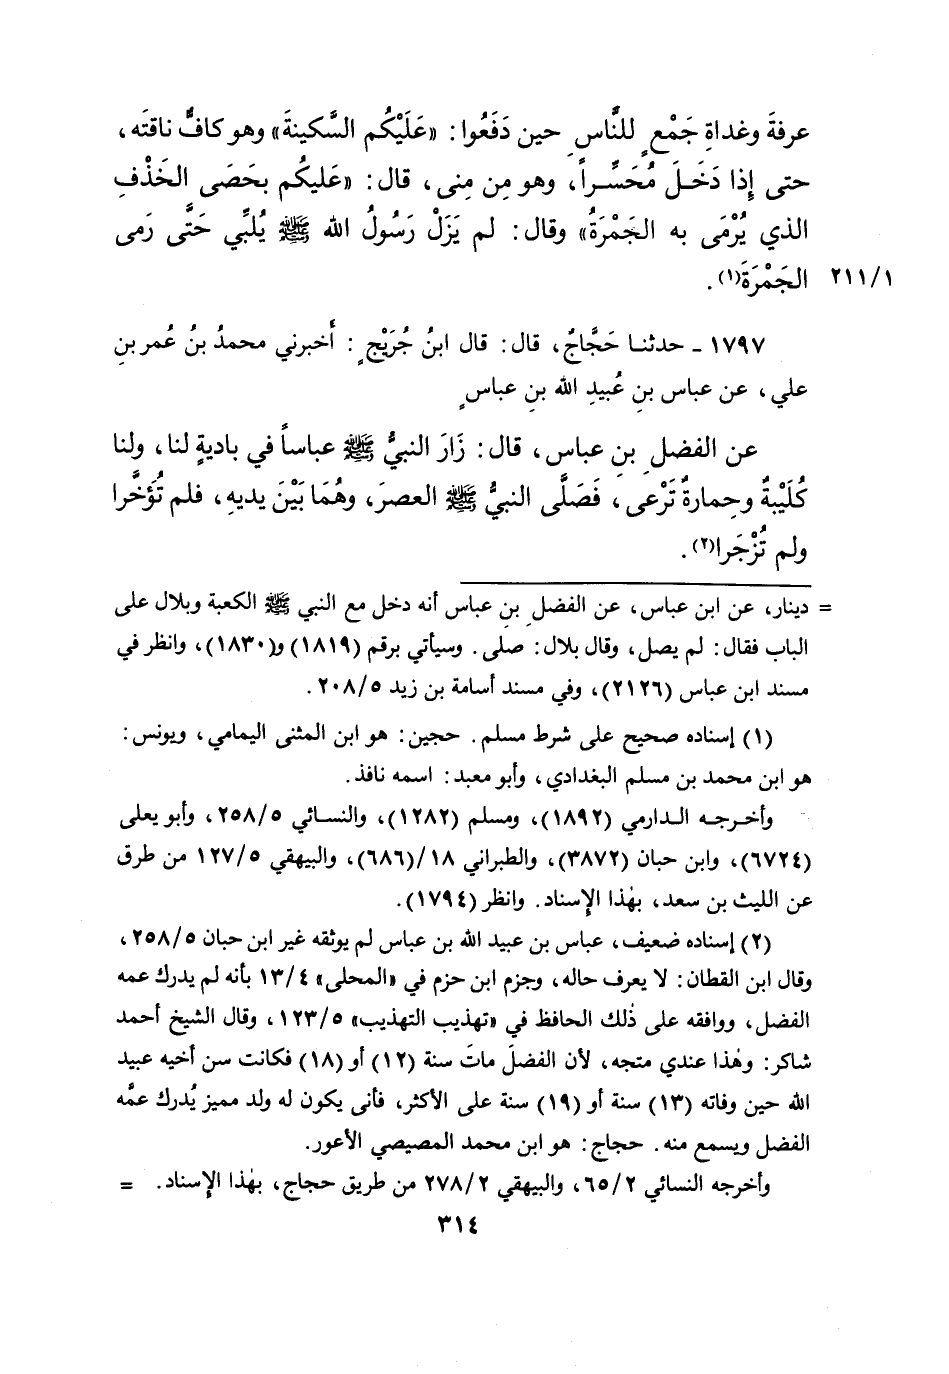 عرفةَ وغداةِ جَمْعٍ للنَّاسِ حين دَفَعُوا: «عَلَيْكُم السَّكينةَ» وهو كافٌّ ناقتَه،
حتى إِذا دَخَـلَ مُحَسِّـراً، وهو مِن مِنى، قال: «عَليكُم بحَصَى الخَذْفِ
الذي يُرْمَى به الجَمْرَةُ» وقال: لم يَزَلْ رَسُولُ الله ﷺ يُلبِّي حَتَّى رَمى
الجَمْرَةَ(١). ٢١١/١
١٧٩٧ ـ حدثنـا حَجَّاجٌ، قال: قال ابنُ جُرَيْجٍ: أَخبرني محمدُ بنُ عُمر بنِ
علي، عن عباس بنِ عُبيدِ الله بنِ عباسٍ
عن الفضلِ بنِ عباس، قال: زَارَ النبيُّ ﷺ عباساً في باديةٍ لنا، ولنا
كُلَيْبةٌ وحِمارةٌ تَرْعى، فَصَلَّى النبيُّ ﷺ العصرَ، وهُمَا بَيْنَ يديهِ، فلم تُؤَخَّرا
ولم تُزْجَرا(٢).
= دينار، عن ابن عباس، عن الفضلِ بنِ عباس أنه دخل مع النبي ﷺ الكعبة وبلال على
الباب فقال: لم يصل، وقال بلال: صلى. وسيأتي برقم (١٨١٩) و(١٨٣٠)، وانظر في
مسند ابن عباس (٢١٢٦)، وفي مسند أسامة بن زيد ٢٠٨/٥.
(١) إسناده صحيح على شرط مسلم. حجين: هو ابن المثنى اليمامي، ويونس:
هو ابن محمد بن مسلم البغدادي، وأبو معبد: اسمه نافذ.
وأخـرجـه الـدارمي (١٨٩٢)، ومسلم (١٢٨٢)، والنسـائي ٢٥٨/٥، وأبو يعلى
(٦٧٢٤)، وابن حبان (٣٨٧٢)، والطبراني ١٨/(٦٨٦)، والبيهقي ١٢٧/٥ من طرق
عن الليث بن سعد، بهٰذا الإِسناد. وانظر (١٧٩٤).
(٢) إسناده ضعيف، عباس بن عبيد الله بن عباس لم يوثقه غير ابن حبان ٢٥٨/٥،
وقال ابن القطان: لا يعرف حاله، وجزم ابن حزم في «المحلى» ١٣/٤ بأنه لم يدرك عمه
الفضل، ووافقه على ذٰلك الحافظ في «تهذيب التهذيب» ١٢٣/٥، وقال الشيخ أحمد
شاكر: وهٰذا عندي متجه، لأن الفضلَ ماتَ سنة (١٢) أو (١٨) فكانت سن أخيه عبيد
الله حين وفاته (١٣) سنة أو (١٩) سنة على الأكثر، فأنى يكون له ولد مميز يُدرك عمَّه
الفضل ويسمع منه. حجاج: هو ابن محمد المصيصي الأعور.
وأخرجه النسائي ٦٥/٢، والبيهقي ٢٧٨/٢ من طريق حجاج، بهٰذا الإِسناد. =
٣١٤